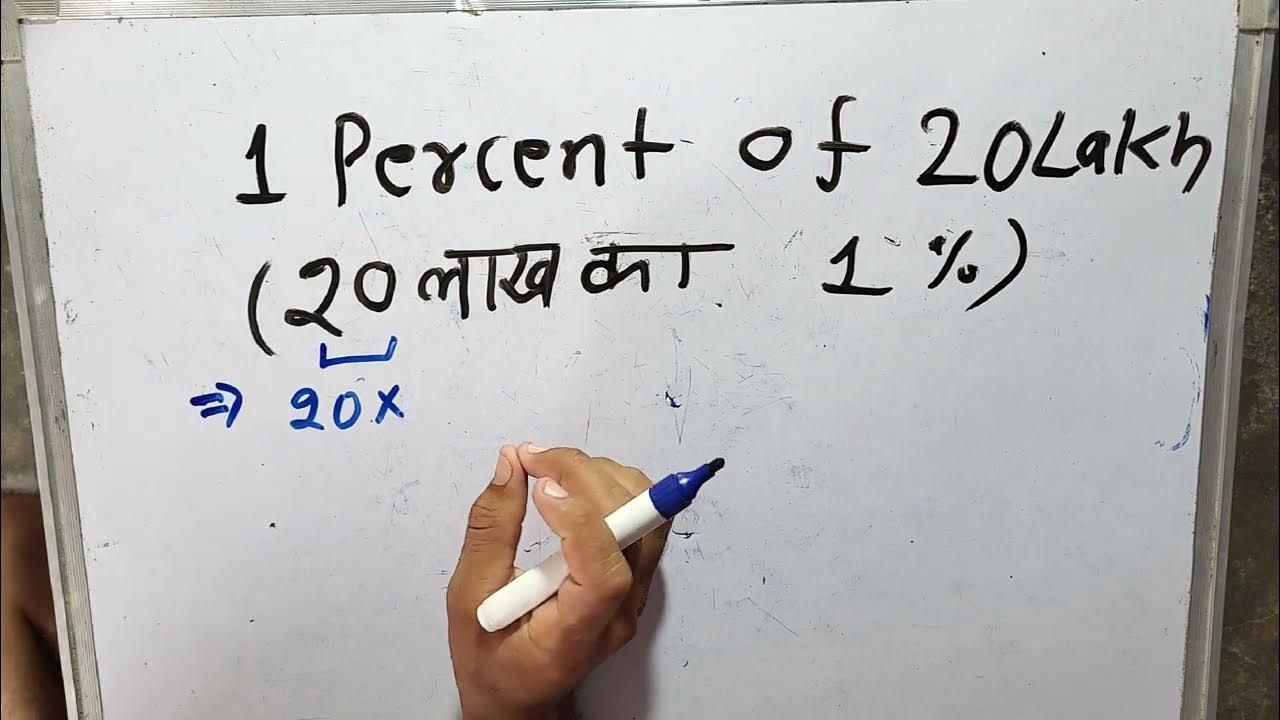 1 Percent of 20 Lakh
(20 लाख का 1 %)
⇒ 20 x